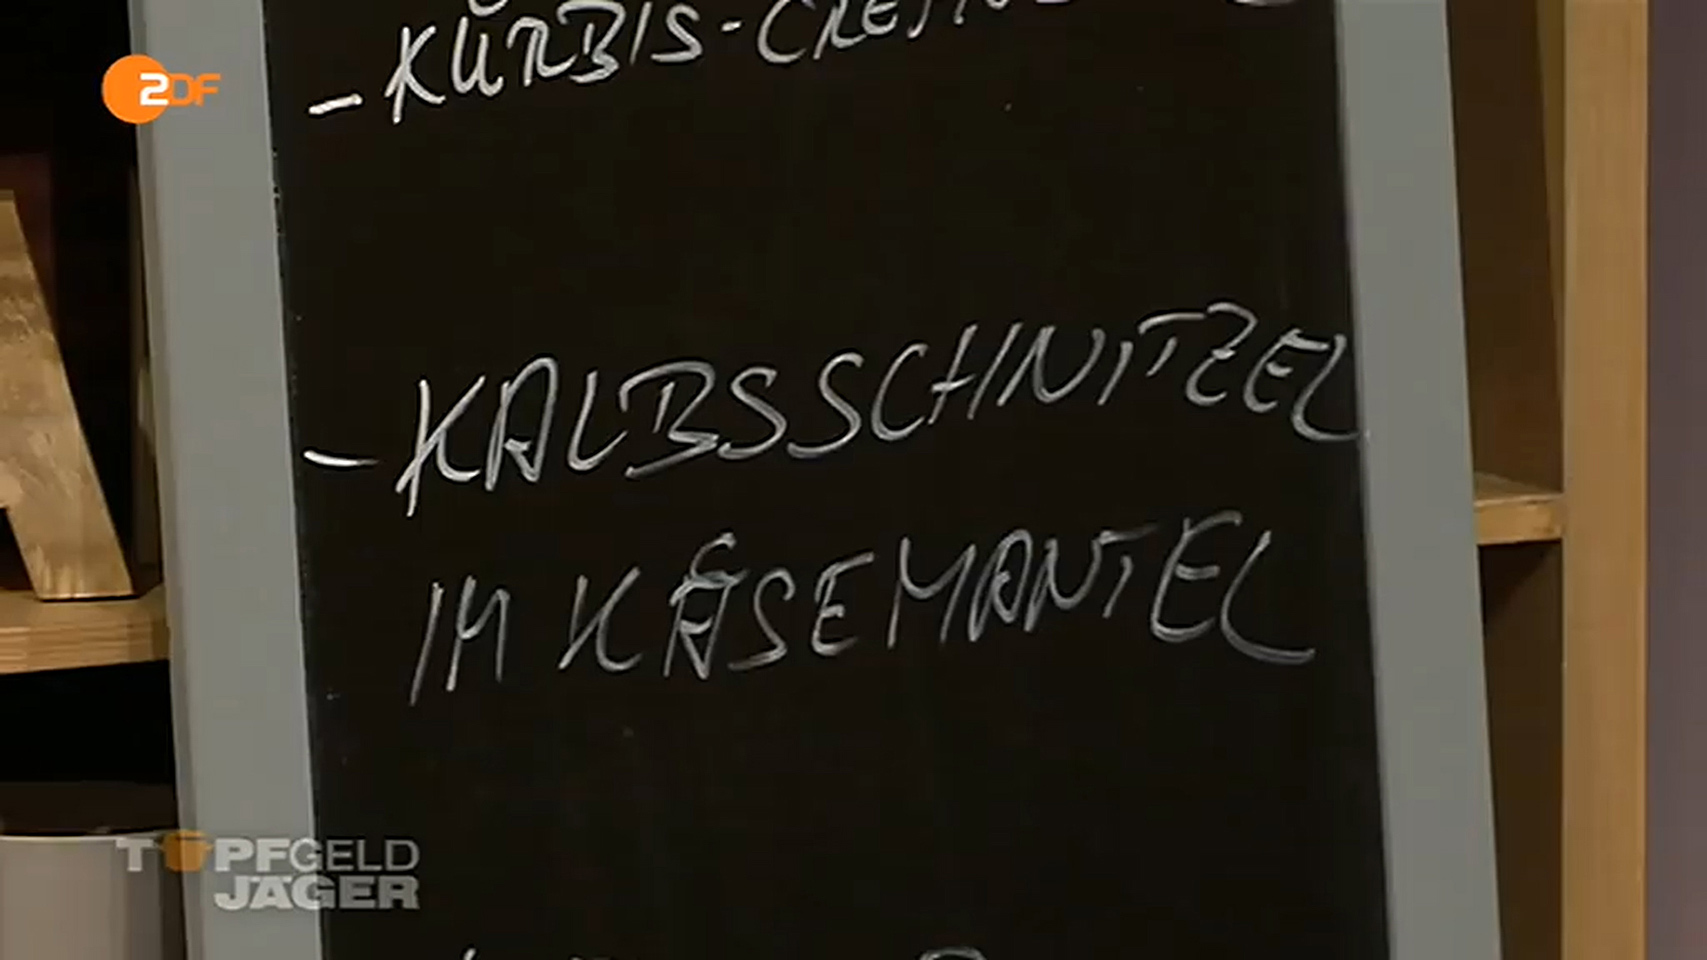 - KÜRBIS-CREME
ZDF
- KALBSSCHNITZEL
IM KÄSEMANTEL
TOPFGELD
JÄGER